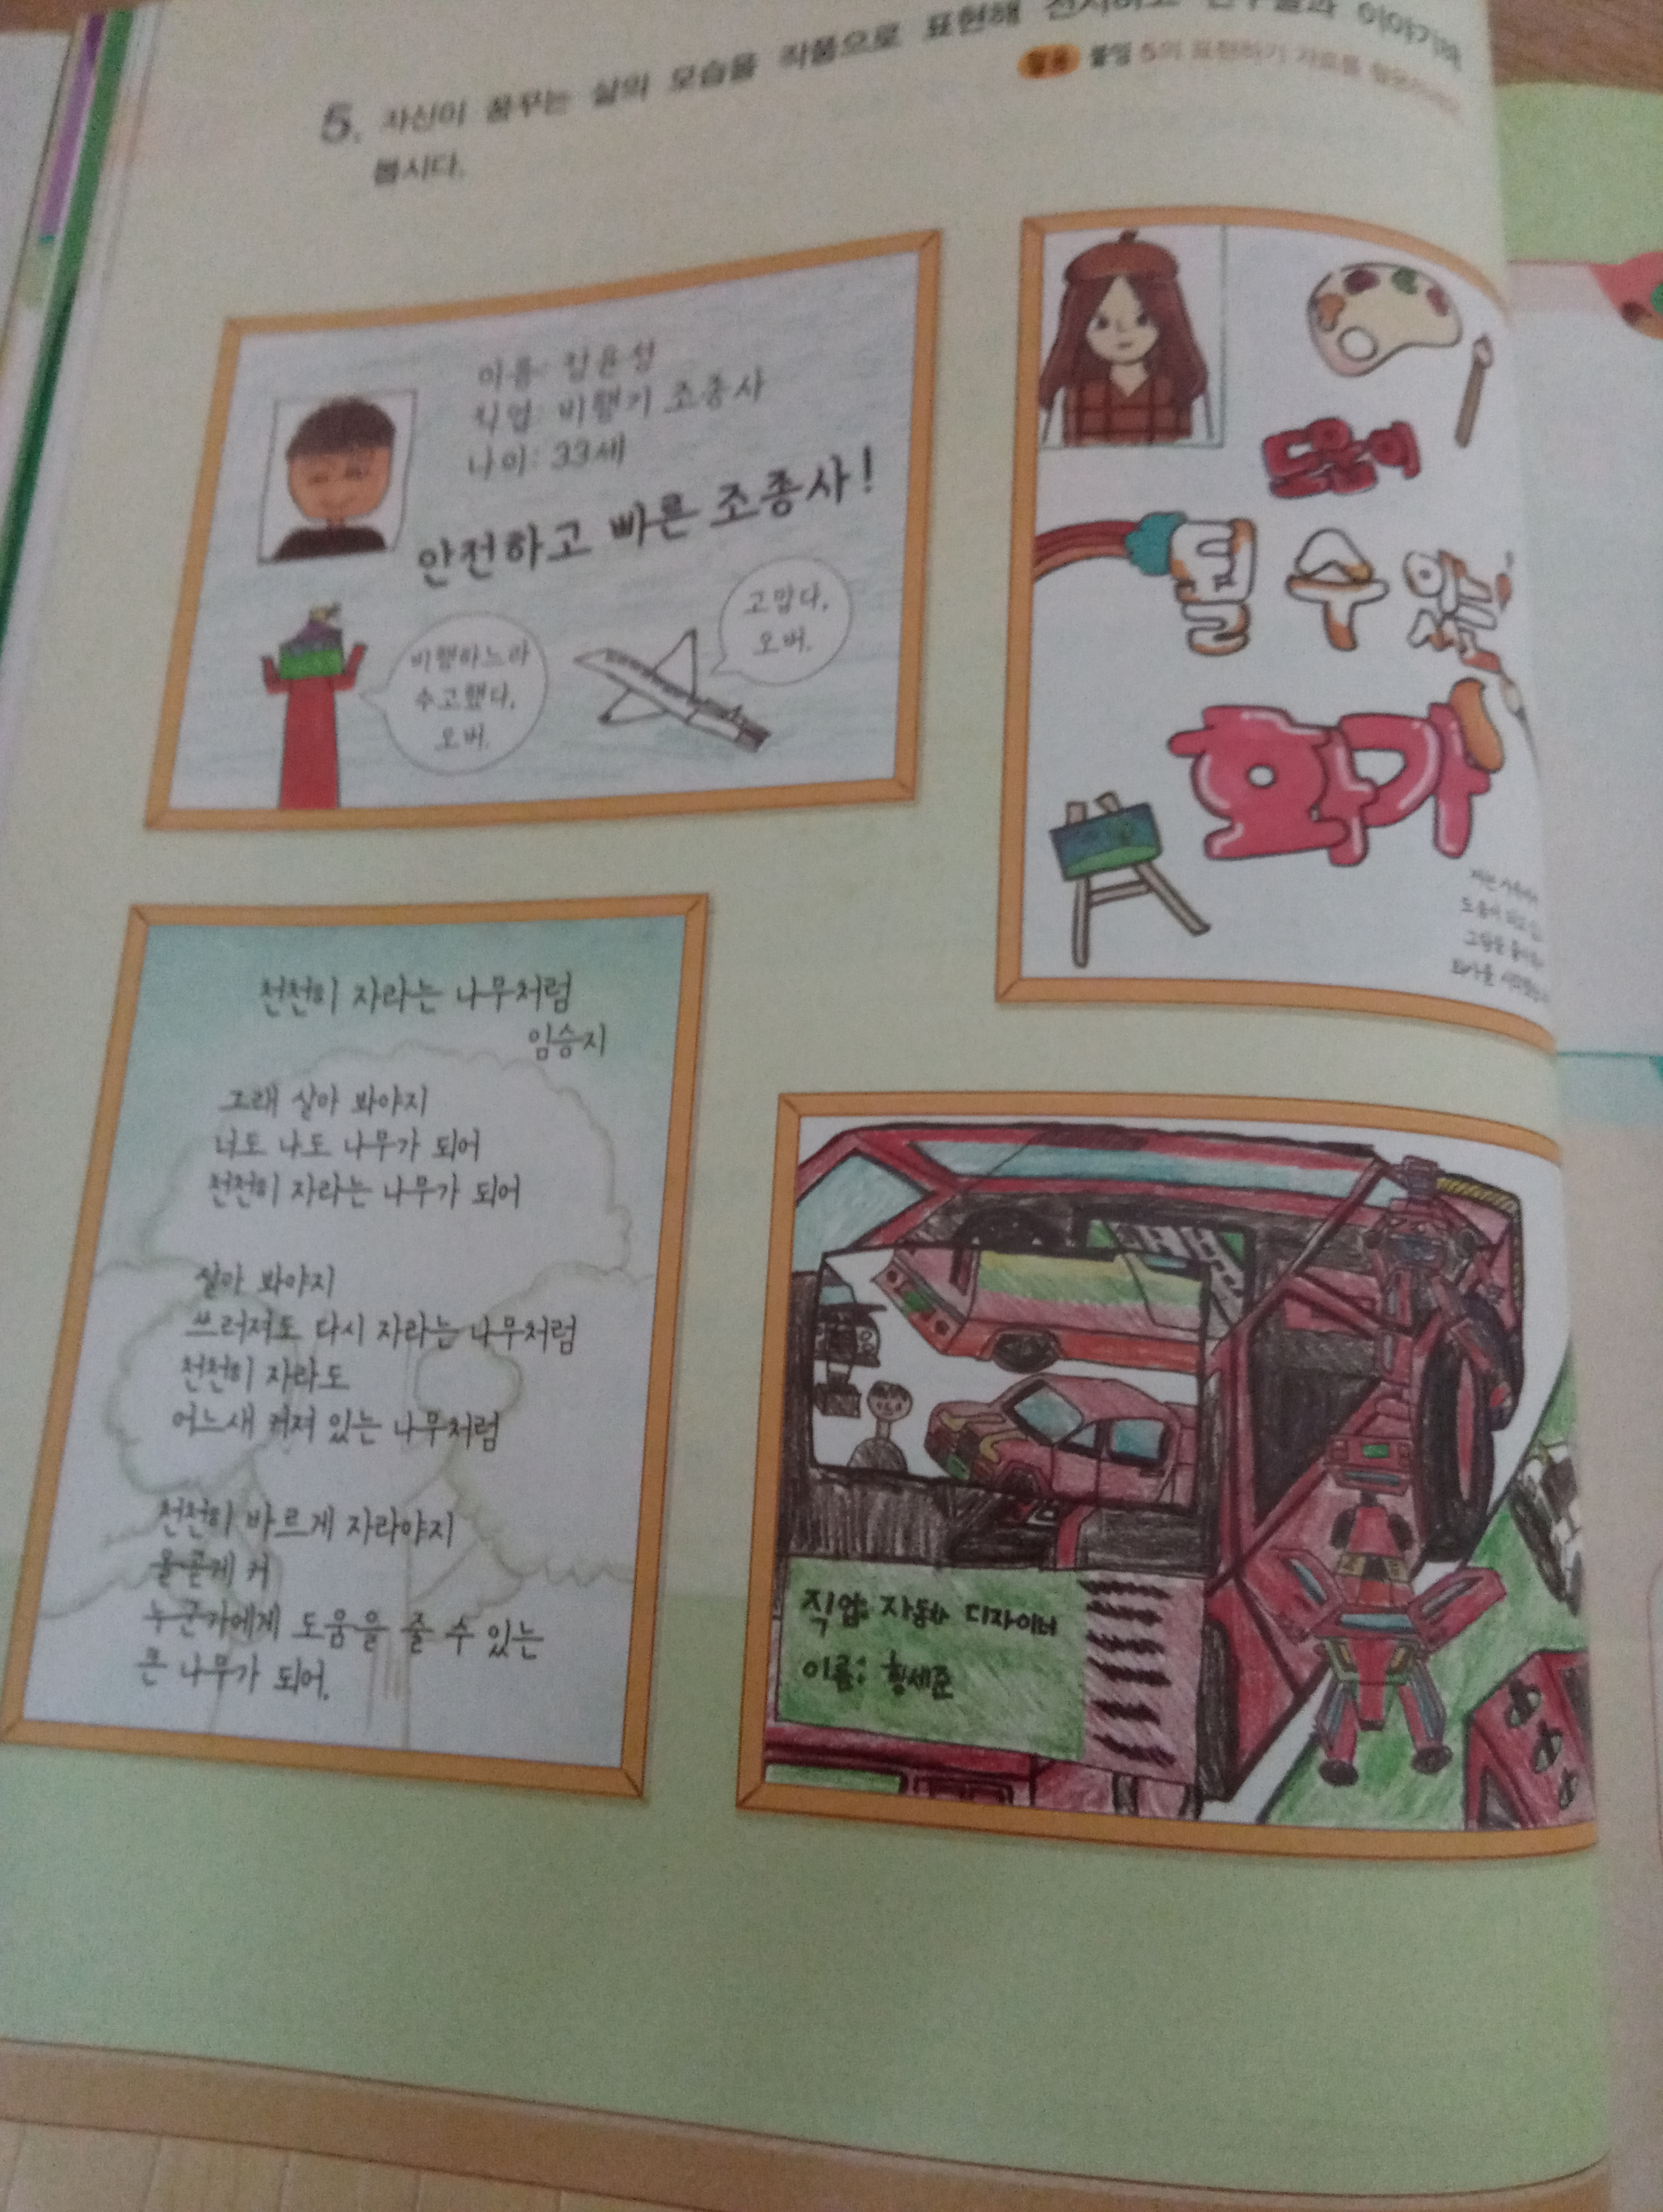 5. 자신이 꿈꾸는 삶의 모습을 작품으로 표현해 전시하고 친구들과 이야기해
봅시다.
활용 붙임 5의 표현하기 자료를 활용하세요.
이름: 장윤성
직업: 비행기 조종사
나이: 33세
안전하고 빠른 조종사!
비행하느라
수고했다,
오버.
고맙다,
오버.
도움이
될 수 있는
화가
저는
도움이 되고
그림을
화가를
천천히 자라는 나무처럼
임승지
그래 살아 봐야지
너도 나도 나무가 되어
천천히 자라는 나무가 되어
살아 봐야지
쓰러져도 다시 자라는 나무처럼
천천히 자라도
어느새 커져 있는 나무처럼
천천히 바르게 자라야지
올곧게 커
누군가에게 도움을 줄 수 있는
큰 나무가 되어.
직업: 자동차 디자이너
이름: 황세준